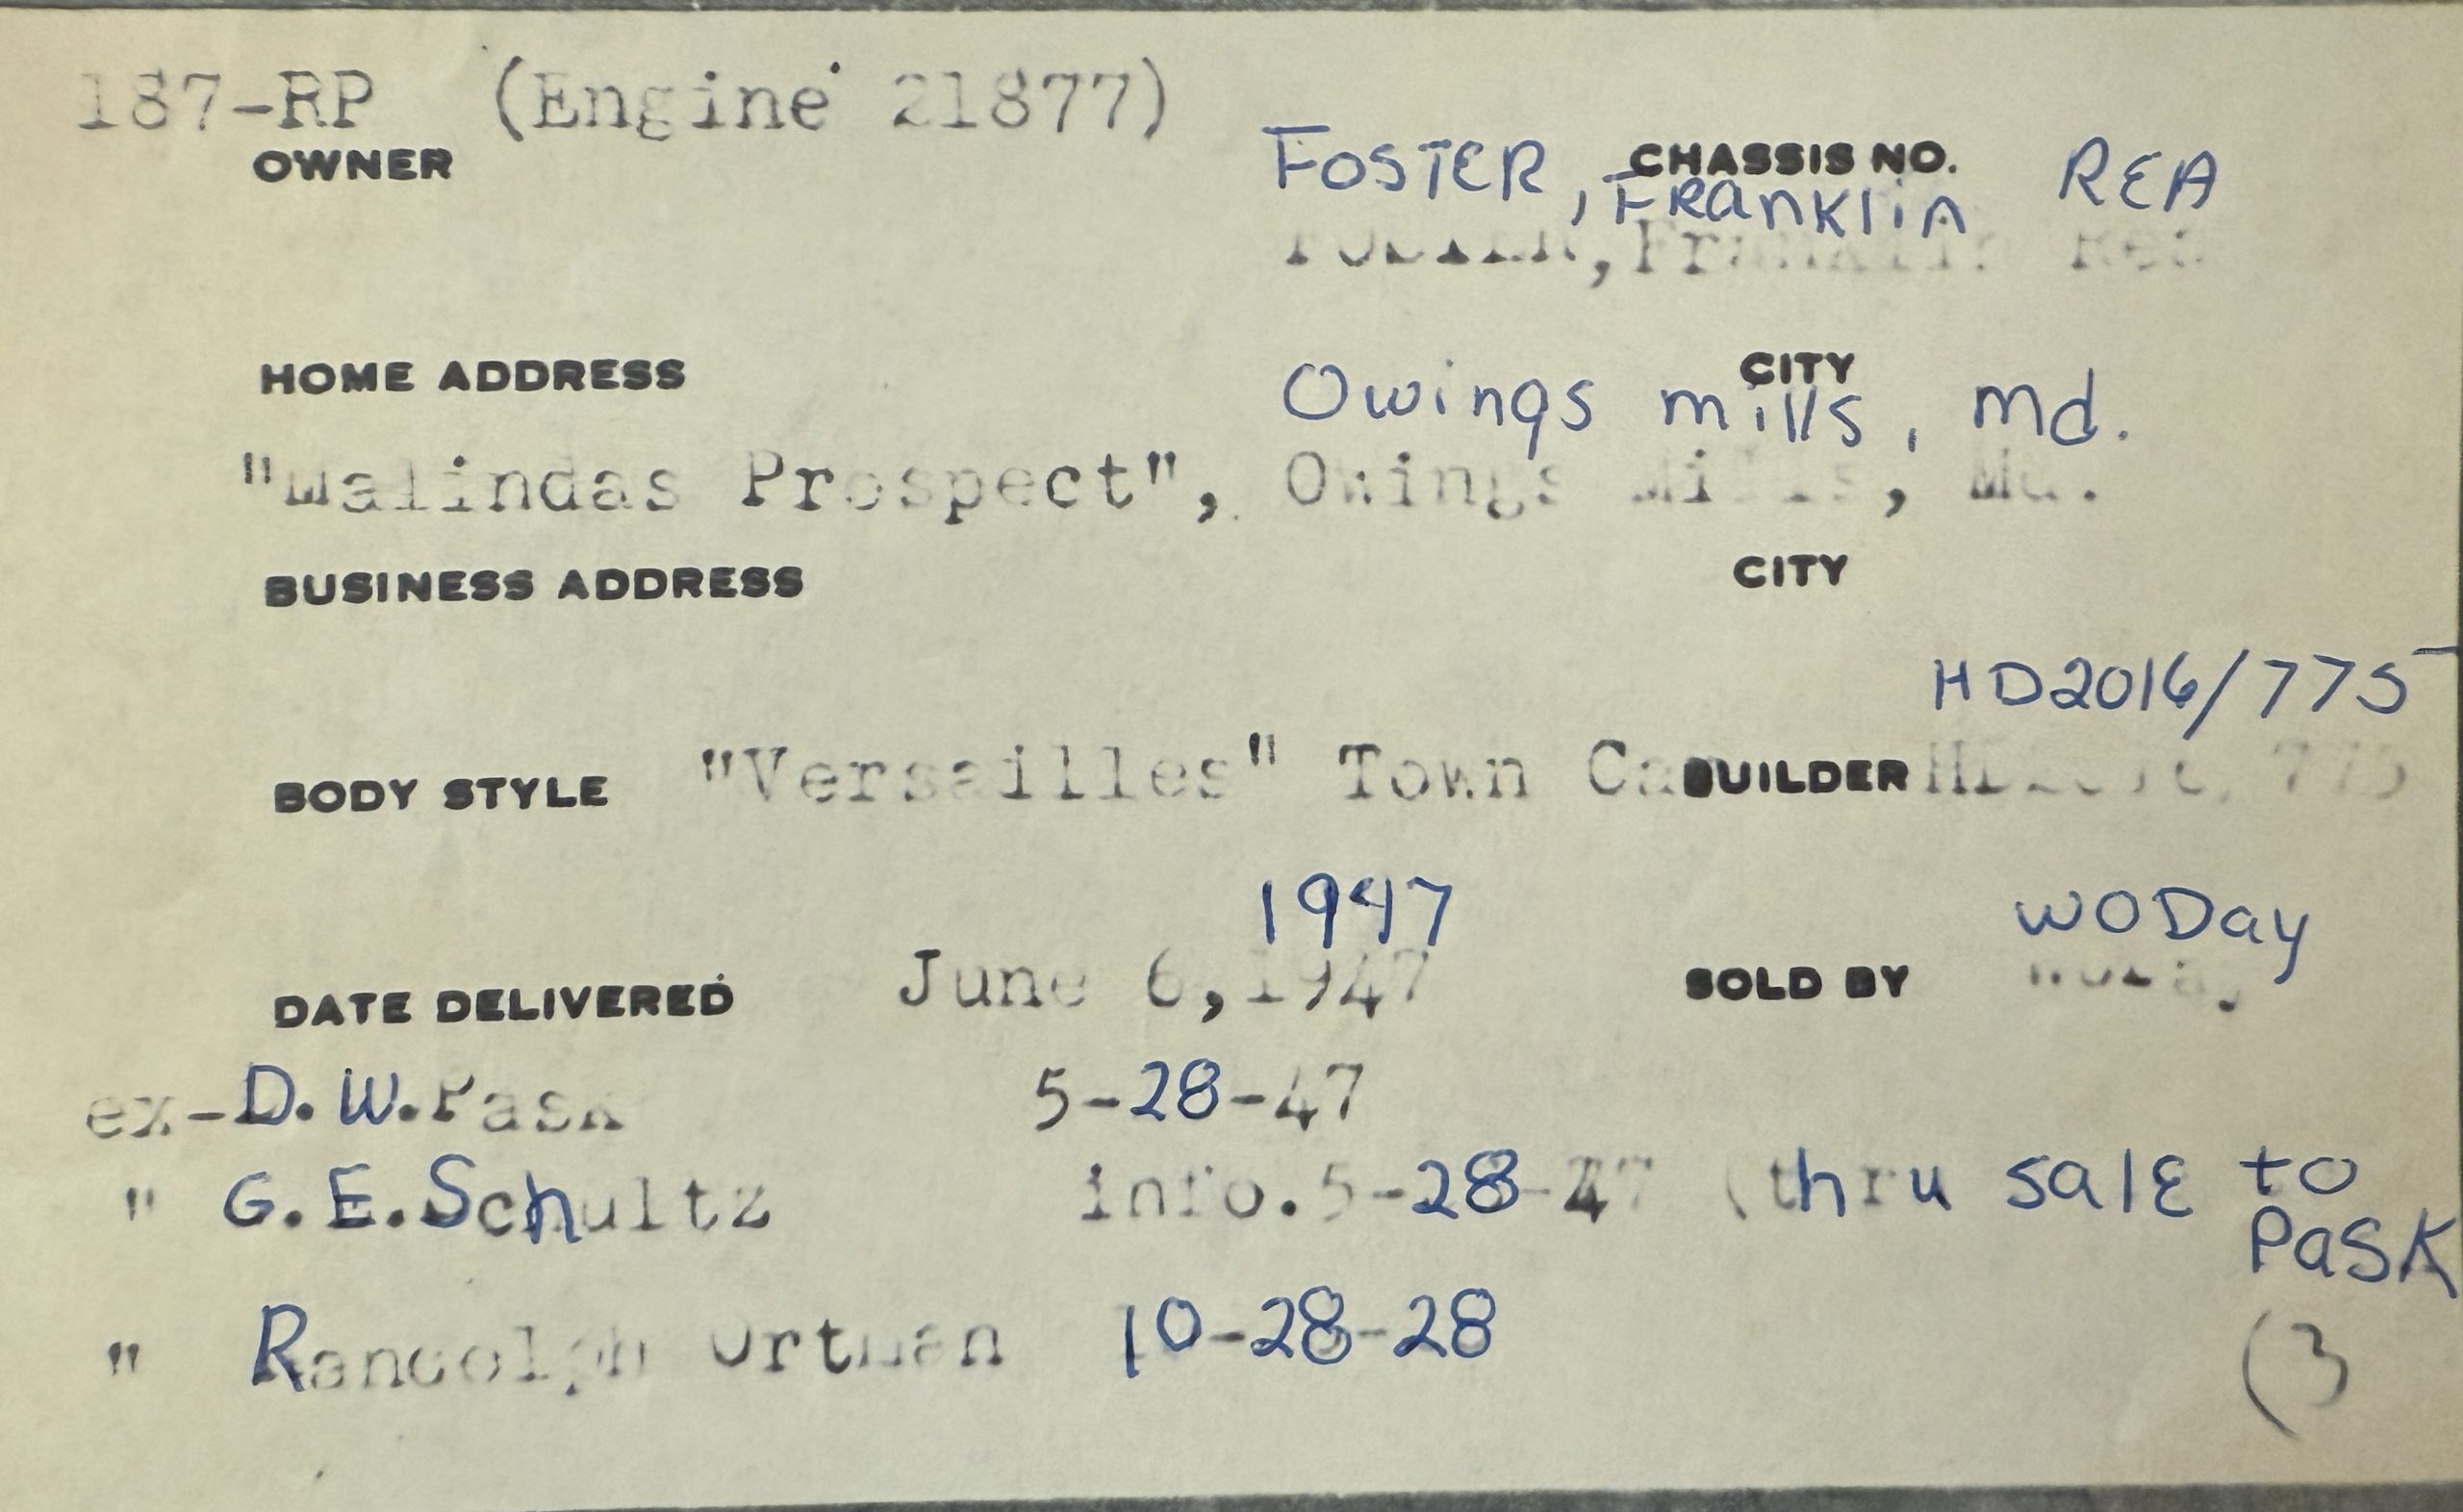 187-RP (Engine 21877)
OWNER CHASSIS NO.
FOSTER, FRanKlin REA
FOSTER, Franklin Rea
HOME ADDRESS CITY
Owings mills, md.
"Malindas Prospect", Owings Mills, Md.
BUSINESS ADDRESS CITY
HD2016/775
BODY STYLE "Versailles" Town Car BUILDER
1947 WODay
DATE DELIVERED June 6,1947 SOLD BY
ex-D.W.Pask 5-28-47
" G.E.Schultz info.5-28-47 (thru salE to
PaSK
" Randolph 10-28-28
(3